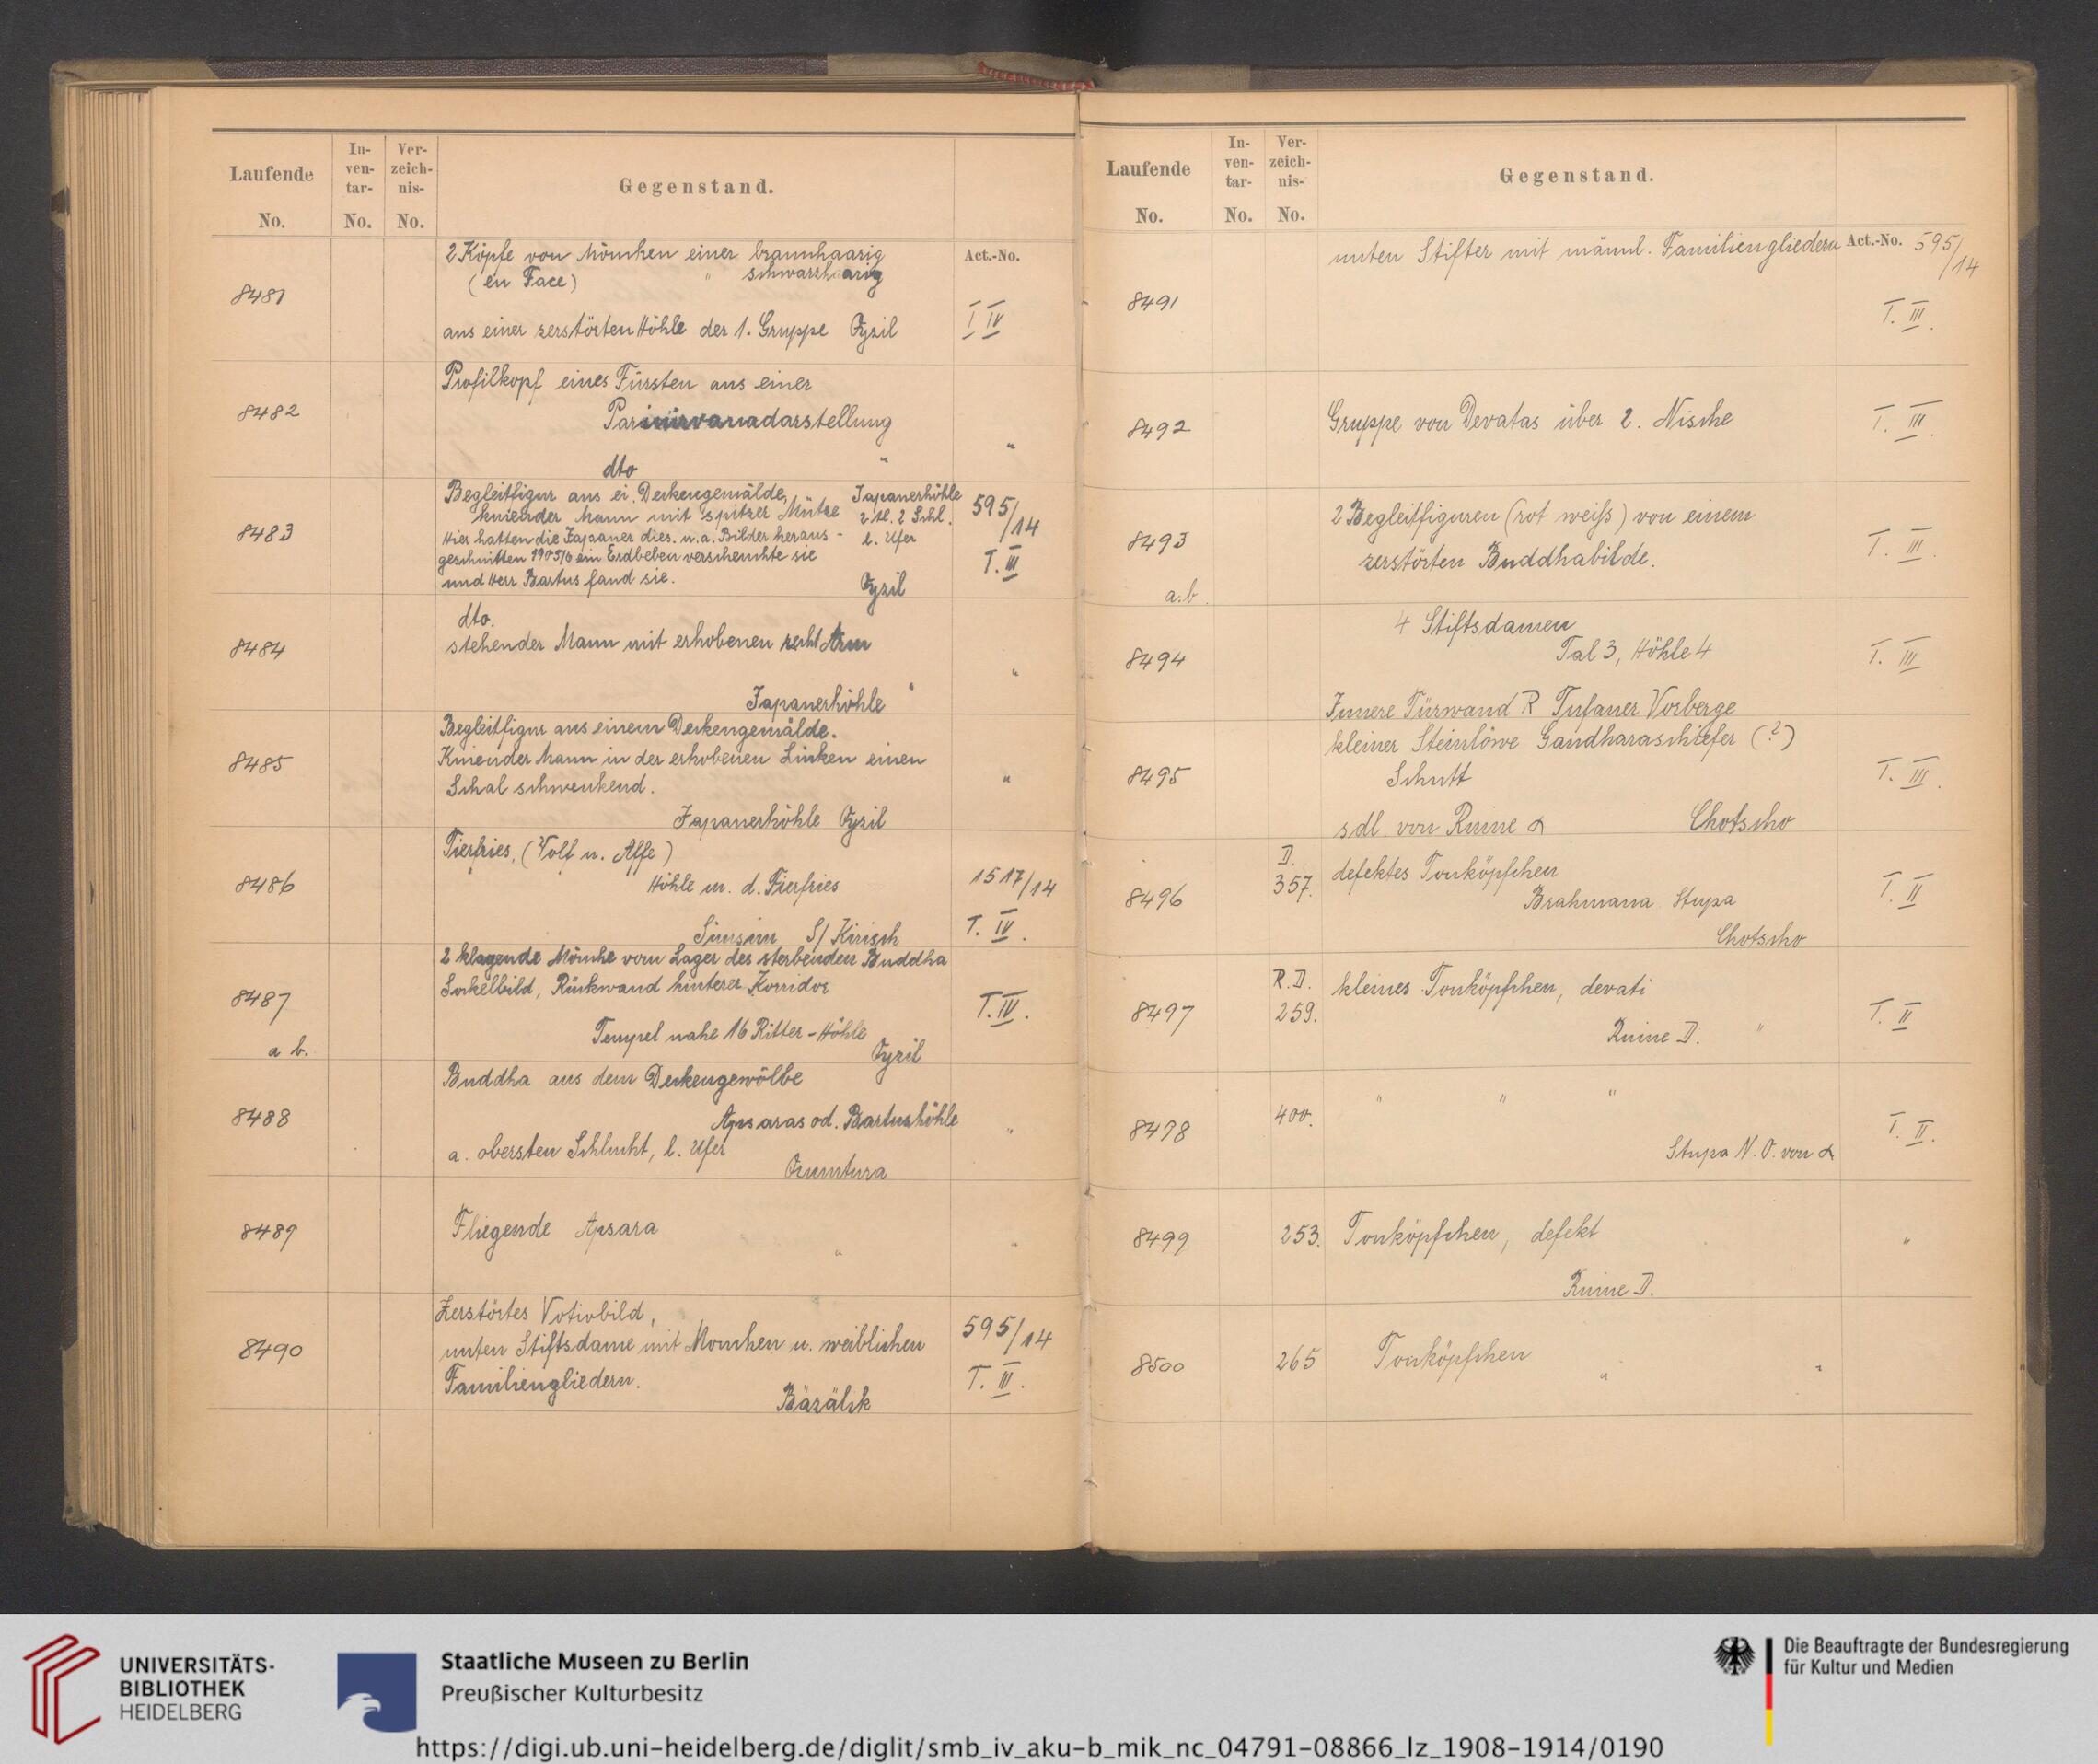 Laufende No.
In-ven-tar- No.
Ver-zeich-nis- No.
Gegenstand.
Act.-No.
8481
2 Köpfe von Mönchen einer braunhaarig
(en Face) " schwarzhaarig
aus einer zerstörten Höhle der 1. Gruppe Qyzil
T IV
8482
Profilkopf eines Fürsten aus einer
Parinirvanadarstellung
dto "
"
8483
Begleitfigur aus ei. Deckengemälde, Japanerhöhle
kniender Mann mit spitzer Mütze 2. kl. 2 Schl.
Hier hatten die Japaner dies. u. a. Bilder heraus- l. Ufer
geschnitten 1905/6 ein Erdbeben verscheuchte sie
und Herr Bartus fand sie. Qyzil
595/14
T. III
8484
dto.
stehender Mann mit erhobenen recht Arm
Japanerhöhle "
"
8485
Begleitfigur aus einem Deckengemälde.
Kniender Mann in der erhobenen Linken einen
Schal schwenkend.
Japanerhöhle Qyzil
"
8486
Tierfries, (Wolf u. Affe)
Höhle m. d. Tierfries
Simsim S/ Kirisch
1517/14
T. IV.
8487
a b.
2 klagende Mönche vom Lager des sterbenden Buddha
Sockelbild, Rückwand hinterer Korridor
Tempel nahe 16 Ritter-Höhle
Qyzil
T. IV.
8488
Buddha aus dem Deckengewölbe
Apsaras od. Bartushöhle
a. obersten Schlucht, l. Ufer
Qumtura
"
8489
Fliegende Apsara
"
"
8490
Zerstörtes Votivbild,
unten Stiftsdame mit Monchen u. weiblichen
Familiengliedern.
Bäzälik
595/14
T. III.
Laufende No.
In-ven-tar- No.
Ver-zeich-nis- No.
Gegenstand.
Act.-No. 595/14
8491
unten Stifter mit männl. Familiengliedern
T. III.
8492
Gruppe von Devatas über 2. Nische
T. III.
8493
a.b.
2 Begleitfiguren (rot weiß) von einem
zerstörten Buddhabilde.
T. III.
8494
4 Stiftsdamen
Tal 3, Höhle 4
Innere Türwand R Tufaner Vorberge
T. III
8495
kleiner Steinlöwe Gandharaschiefer (?)
Schutt
sdl. von Ruine α Chotscho
T. III.
8496
D.
357.
defektes Tonköpfchen
Brahmana Stupa
Chotscho
T. II
8497
R. D.
259.
kleines Tonköpfchen, devati
Ruine D. "
T. II
8498
400.
" " "
Stupa N. O. von α
T. II.
8499
253.
Tonköpfchen, defekt
Ruine D.
"
8500
265
Tonköpfchen
"
"
UNIVERSITÄTS-
BIBLIOTHEK
HEIDELBERG
Staatliche Museen zu Berlin
Preußischer Kulturbesitz
Die Beauftragte der Bundesregierung
für Kultur und Medien
https://digi.ub.uni-heidelberg.de/diglit/smb_iv_aku-b_mik_nc_04791-08866_lz_1908-1914/0190